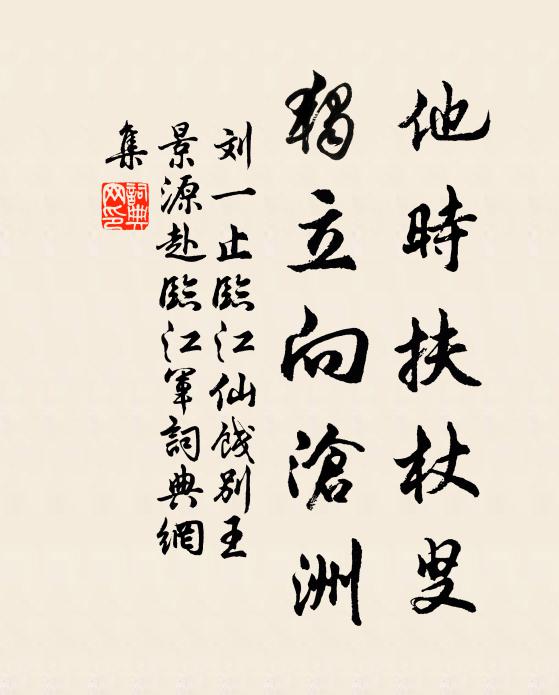 他時扶杖叟
獨立向滄洲
刘一止臨江仙餞别王
景源赴臨江軍詞典網
集
詞典
网印